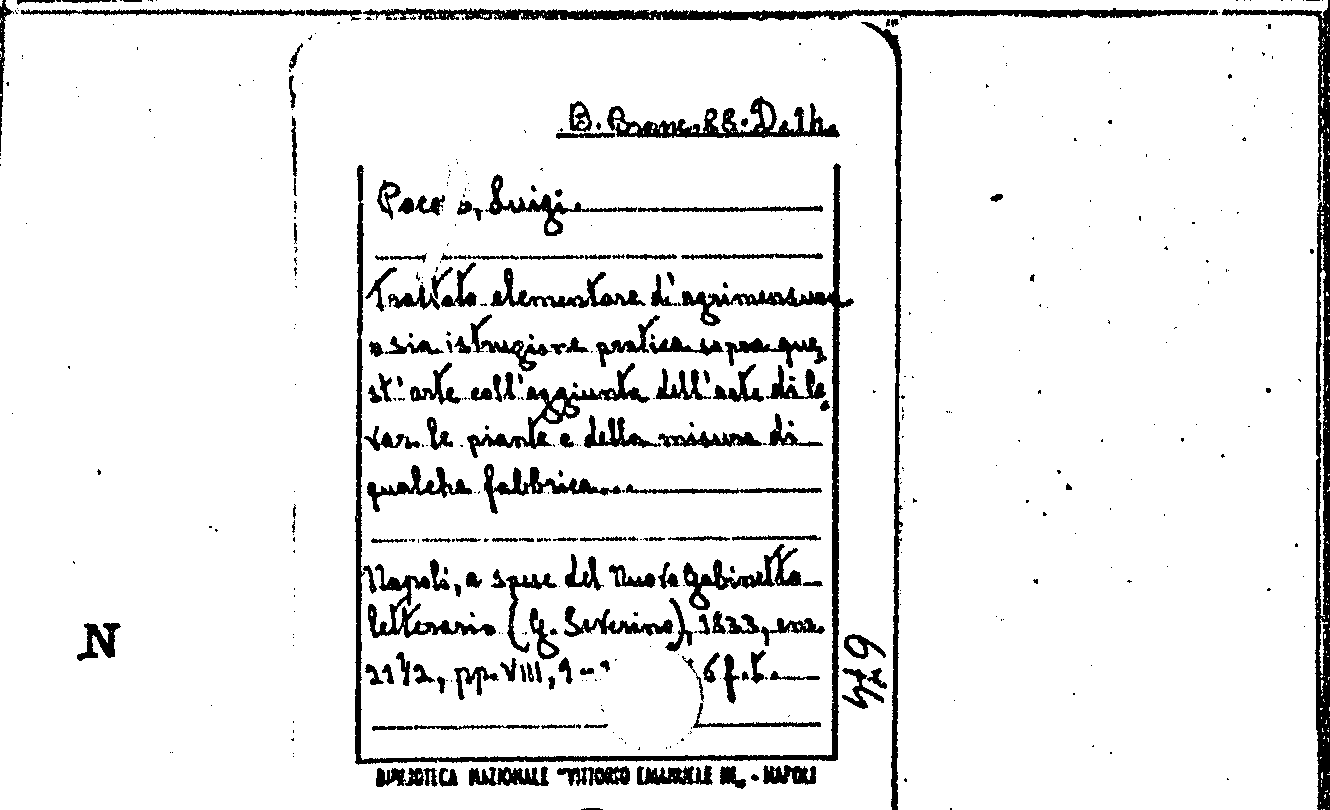 B. Branc. 88. D. 1h.
Luigi.
Trattato elementare d'agrimensura
o sia istruzione pratica sopra que
st'arte coll'aggiunta dell'arte di le
var le piante e della misura di
qualche fabbrica...
Napoli, a spese del Nuovo Gabinetto
letterario (G. Severino), 1833, cm.
21½, pp. VIII, 1- 6 f.t.
N
BIBLIOTECA NAZIONALE "VITTORIO EMANUELE III" - NAPOLI